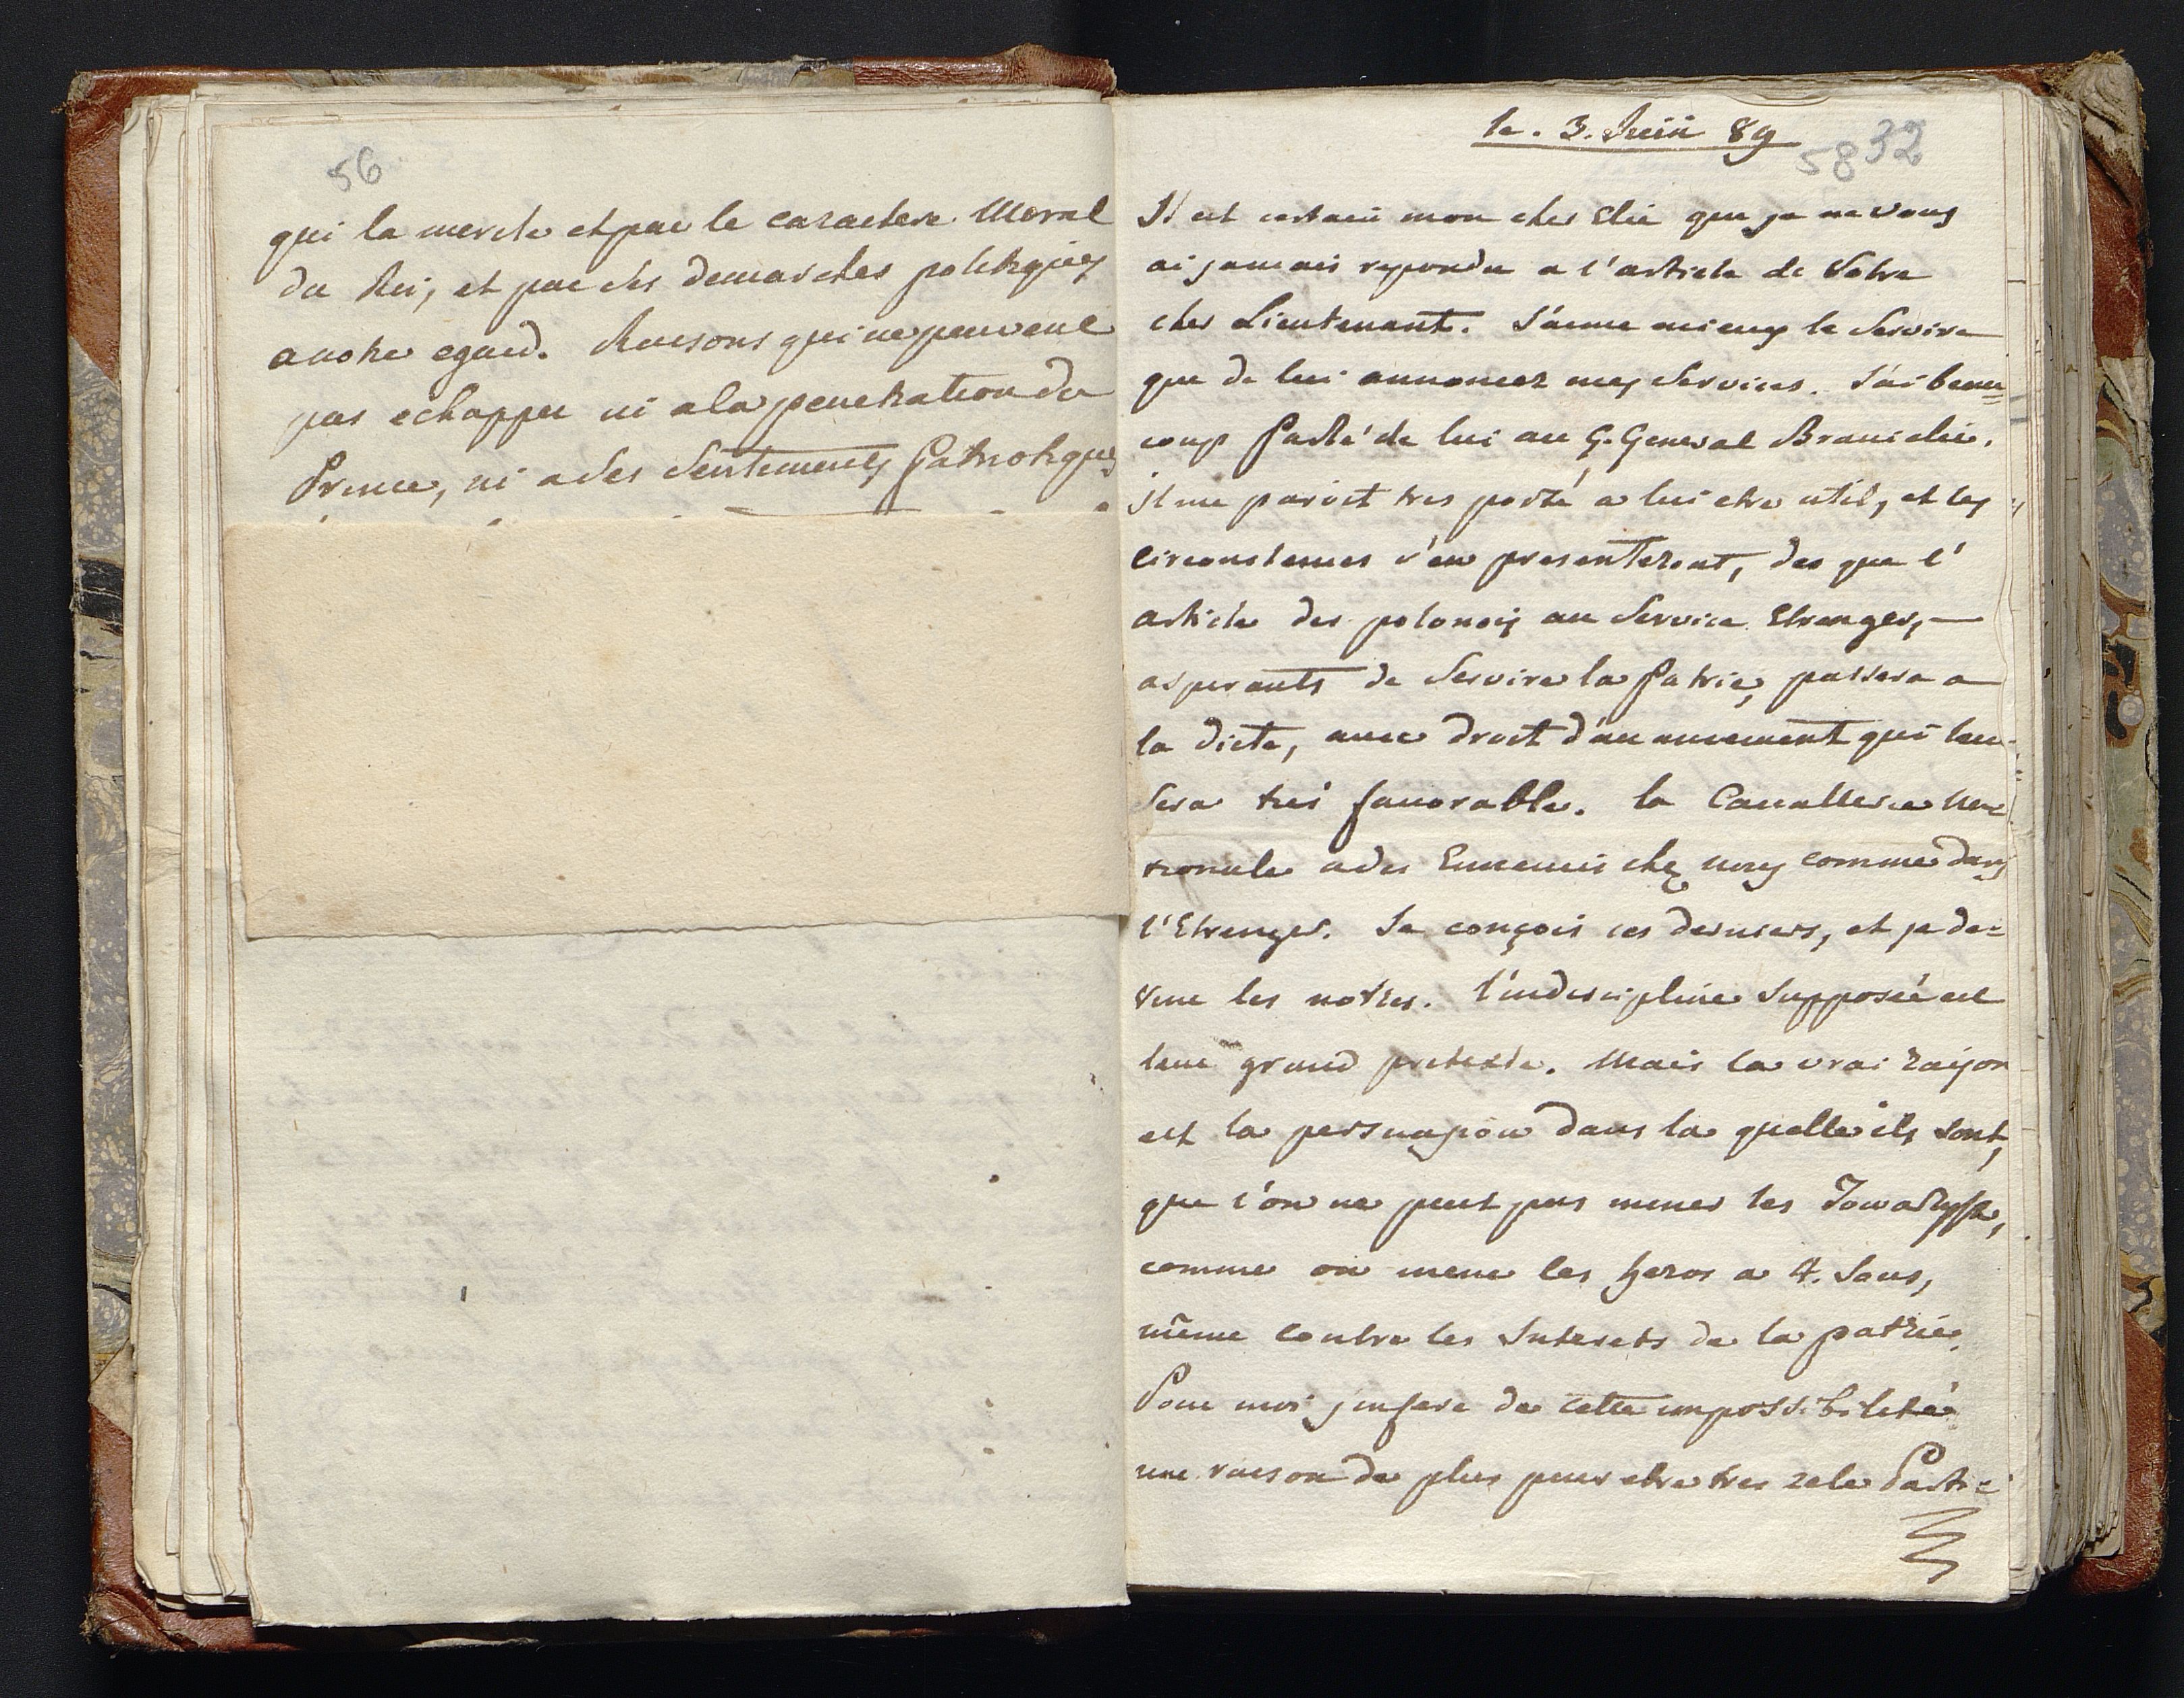 56
qui la merite et par le caractere Moral
du Roi, et par ses demarches politiques
a notre egard. Raisons qui ne peuvent
pas echapper ni a la penetration du
Prince, ni a ses Sentiments Patriotiques
le. 3. Juin 89
58 32
Il est certain mon cher Elie que je ne vous
ai jamais repondu a l'article de Votre
cher Lieutenant. J'aime mieux le Servire
que de lui annoncer mes Services. J'ai beau=
coup parlé de lui au G. General Branicki.
il me paroit tres porté a lui etre util, et les
circonstences s'en presenteront, des que l'
article des polonois au Service Etranger,
aspirants de Servire la Patrie, passera a
la diete, avec droit d'avancement qui leur
Sera tres favorable. la Cavallerie Na=
tionale a des Ennemis chez nous comme dans
l'Etranger. Je conçois ces derniers, et je de=
vine les notres. l'indiscipline Supposée est
leur grand pretexte. Mais la vrai raison
est la persuasion dans la quelle ils sont,
que l'on ne peut pas mener les
comme on mene les heros a 4. Sous,
même contre les Interets de la patrie.
Pour moi j'infere de cette impossibilité
une raison de plus pour etre tres zele Parti=